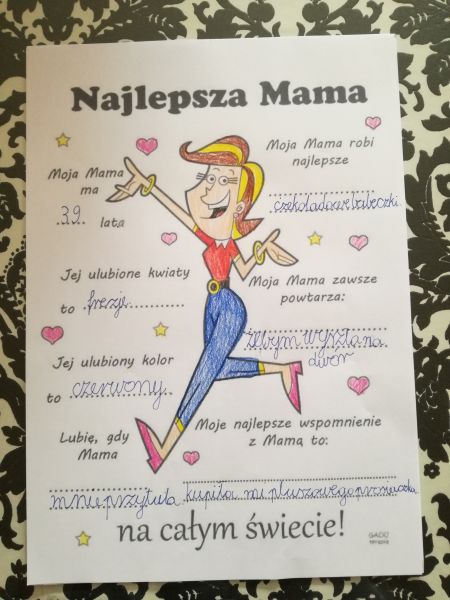 Najlepsza Mama
Moja Mama
ma
39 lata
Moja Mama robi
najlepsze
czekoladowe babeczki
Jej ulubione kwiaty
to frezje
Moja Mama zawsze
powtarza:
żebym wyszła na
dwór
Jej ulubiony kolor
to czerwony
Lubię, gdy
Mama
mnie przytula
Moje najlepsze wspomnienie
z Mamą to:
kupiła mi pluszowego
na całym świecie!